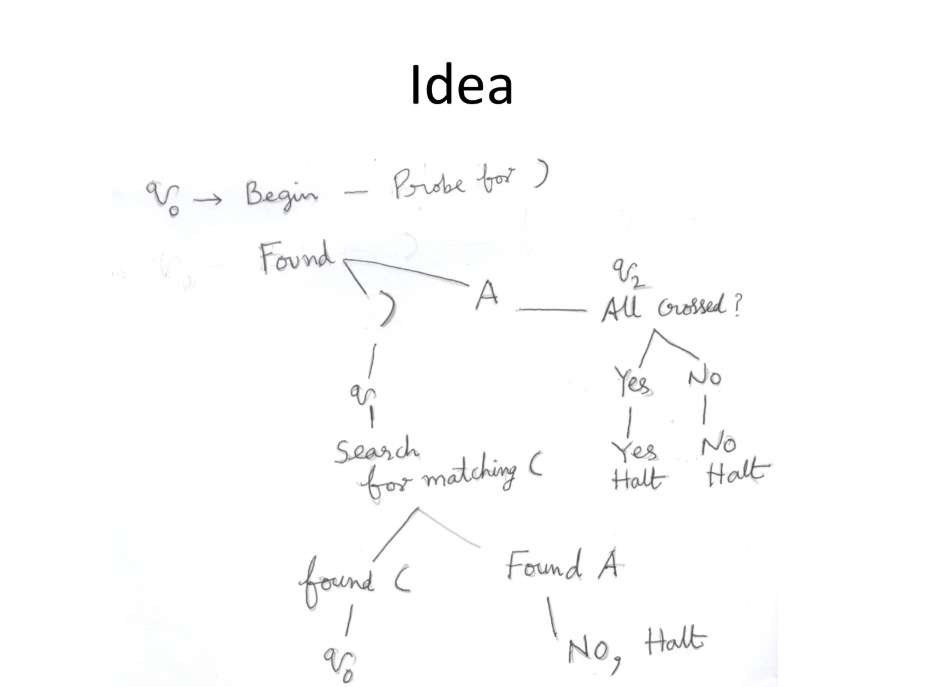 Idea
q₀ → Begin — Probe for )
Found
) A
q₂
All crossed?
Yes No
q₁
Yes No
Halt Halt
Search
for matching (
found ( Found A
q₀ No, Halt